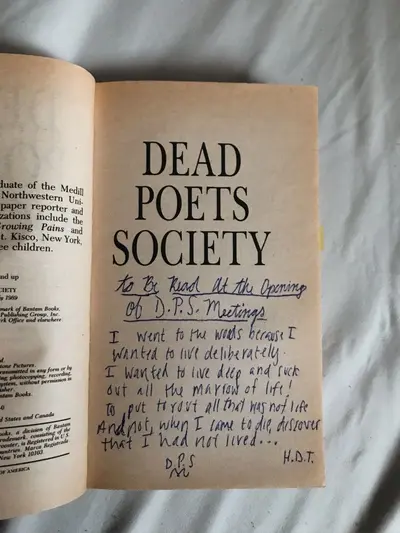 duate of the Medill
Northwestern Uni-
paper reporter and
zations include the
rowing Pains and
t. Kisco, New York,
ee children.
nd up
CIETY
y 1989
demark of Bantam Books,
Publishing Group, Inc.
rk Office and elsewhere
d.
tone Pictures.
ransmitted in any form or by
ng photocopying, recording,
ystem, without permission in
sher.
antam Books.
0
d States and Canada
ooks, a division of Bantam
rademark, consisting of the
rooster, is Registered in U.S.
ountries. Marca Registrada
York 10103.
OF AMERICA
DEAD
POETS
SOCIETY
to Be Read At the Opening
of D.P.S. Meetings
I went to the woods because I
wanted to live deliberately.
I wanted to live deep and suck
out all the marrow of life!
To put to rout all that was not life
And not, when I came to die, discover
that I had not lived...
D.P.S
H.D.T.